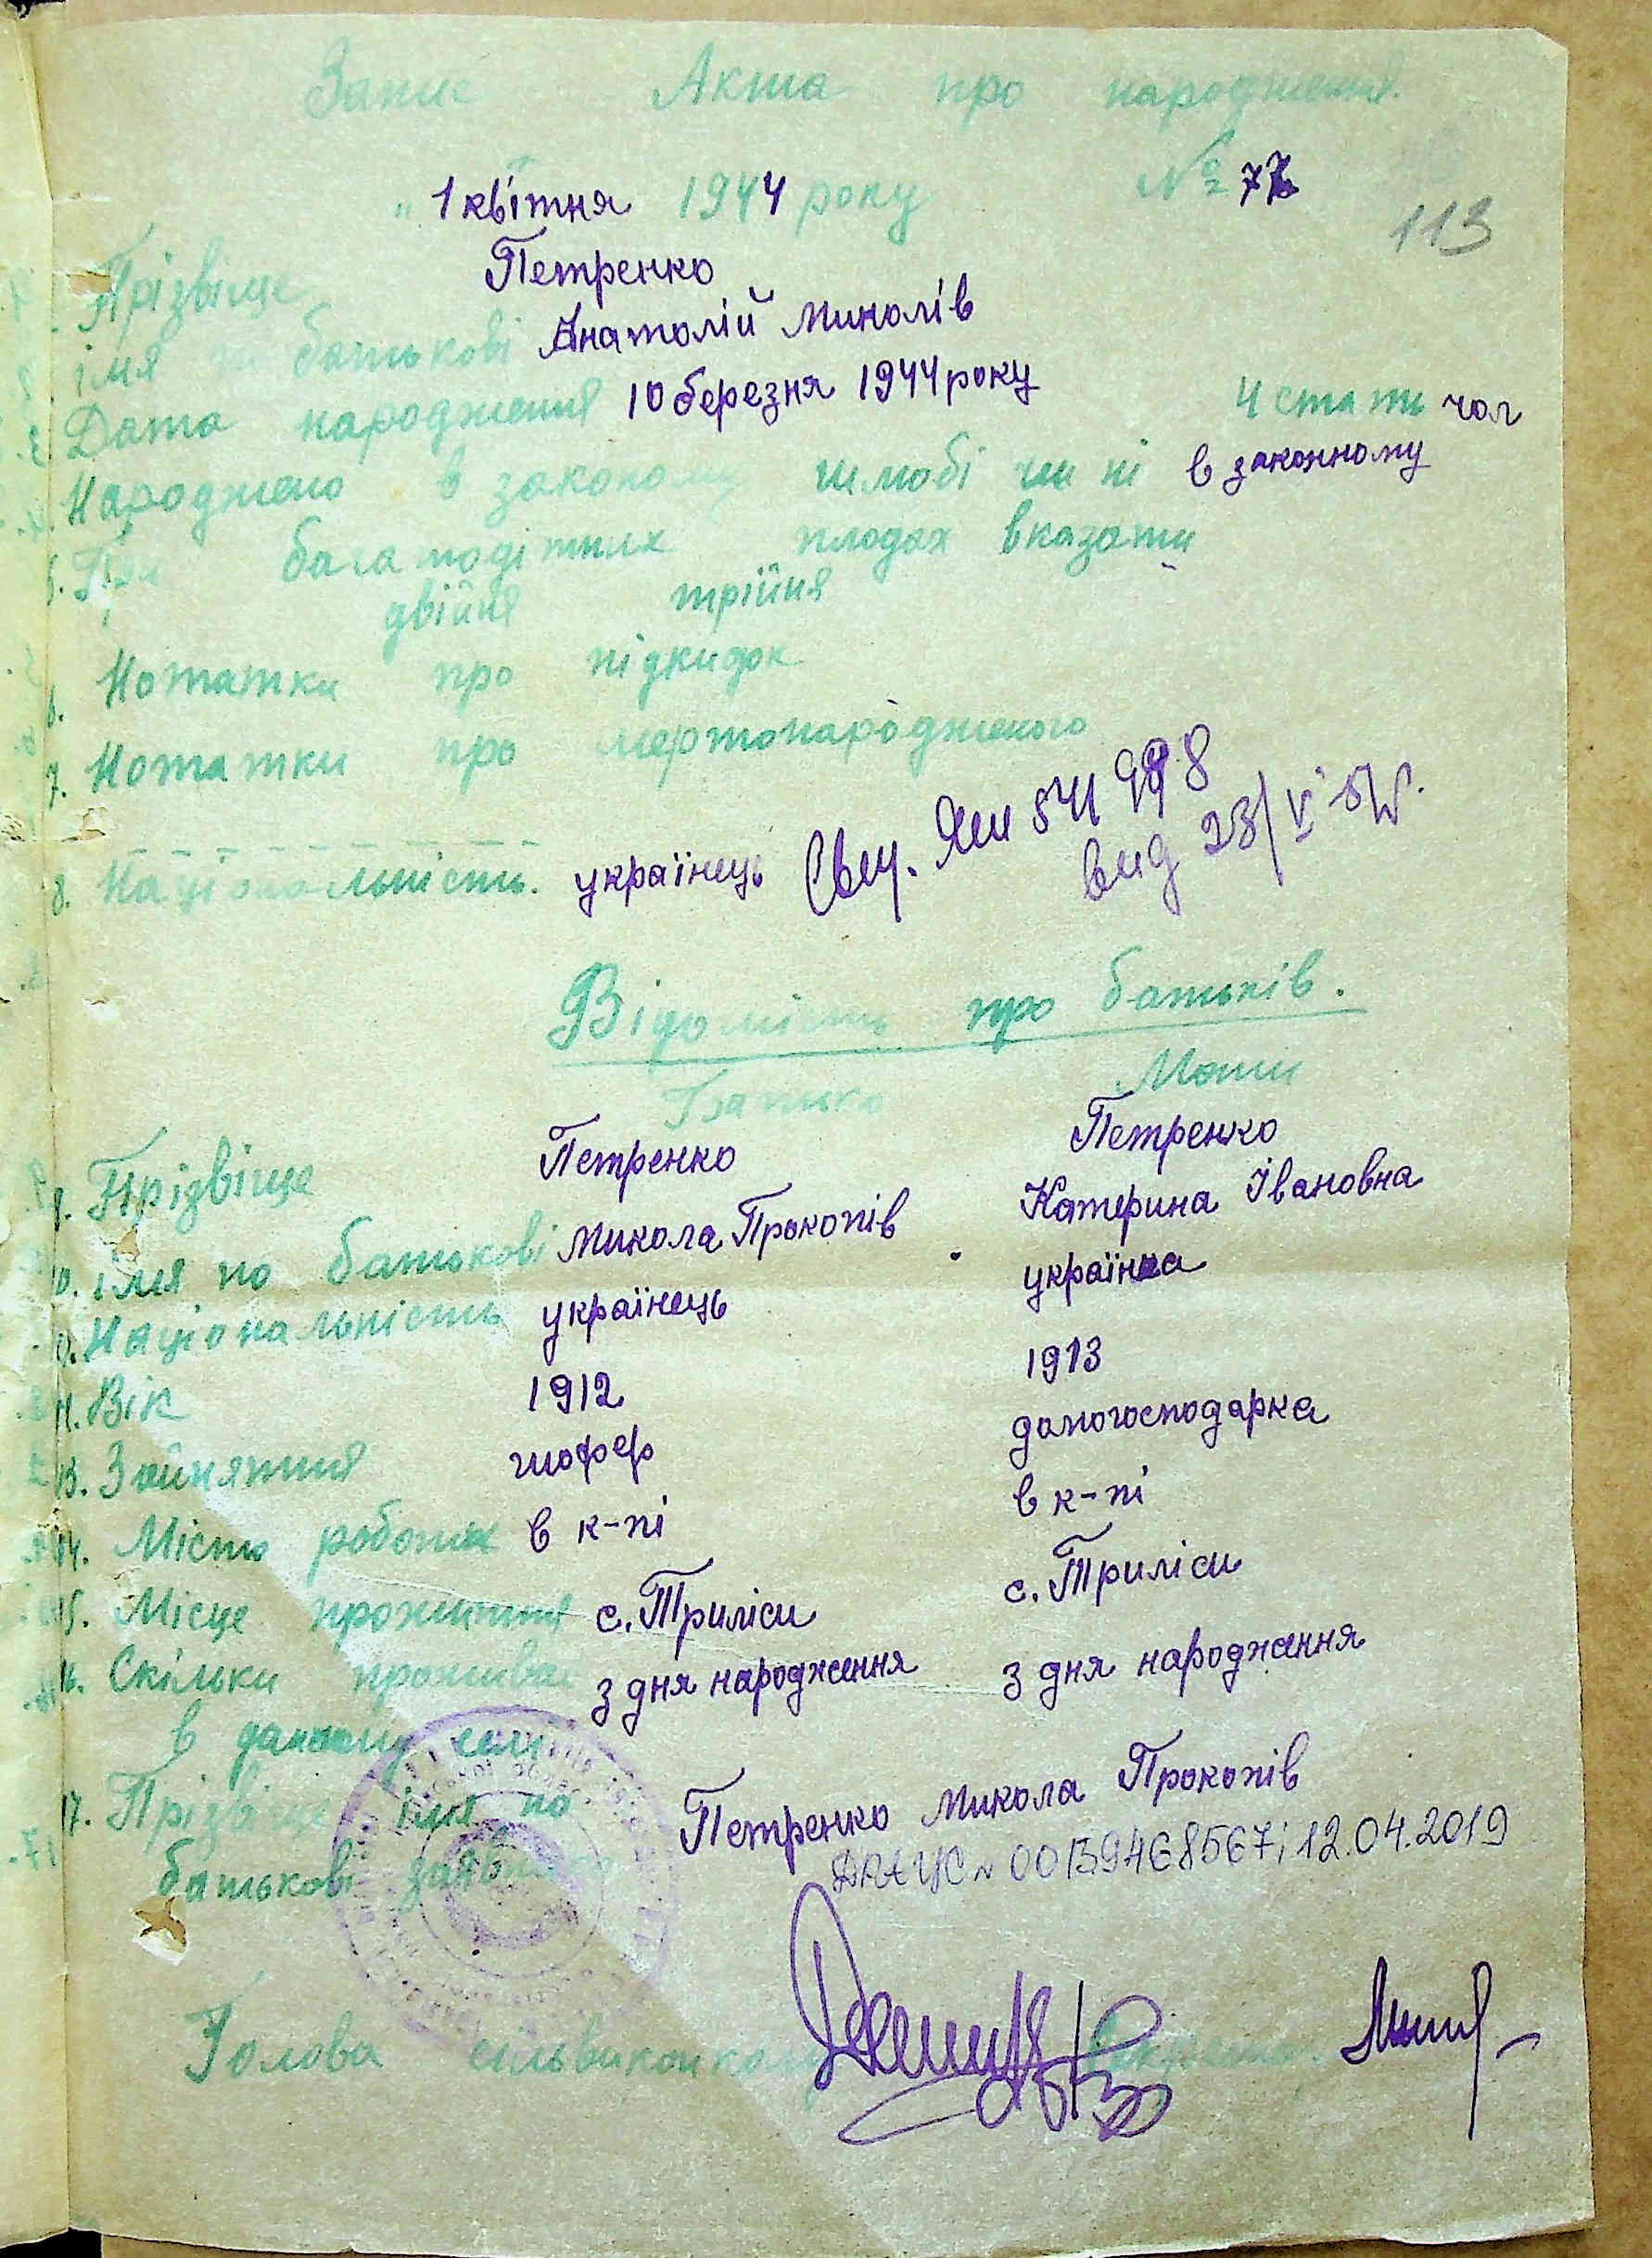 Запис Акта про народження.
"1 квітня 1944 року № 77
113
Прізвіще Петренко
імя по батькові Анатолій Миколів
Дата народження 10 березня 1944 року 4 стать чол
Народжено в законому шлюбі чи ні в законному
5. При багатодітних плодах вказати
двійня трійня
6. Нотатки про підкидок
7. Нотатки про мертонародженого
8. Національність. українець Свид. 541998
вид 23/V
Відомість про батьків.
Батько Мати
9. Прізвіще Петренко Петренко
10. імя по батькові Микола Прокопів Катерина Івановна
Національність українець українка
11. Вік 1912 1913
13. Зайняття шофер домогосподарка
14. Місто роботи в к-пі в к-пі
15. Місце прожиття с. Триліси с. Триліси
16. Скільки проживає з дня народження з дня народження
в даному селі
17. Прізвіще імя по Петренко Микола Прокопів
батькові заявника ДРАЦС № 00139468567; 12.04.2019
Голова сільвиконкому Секретар